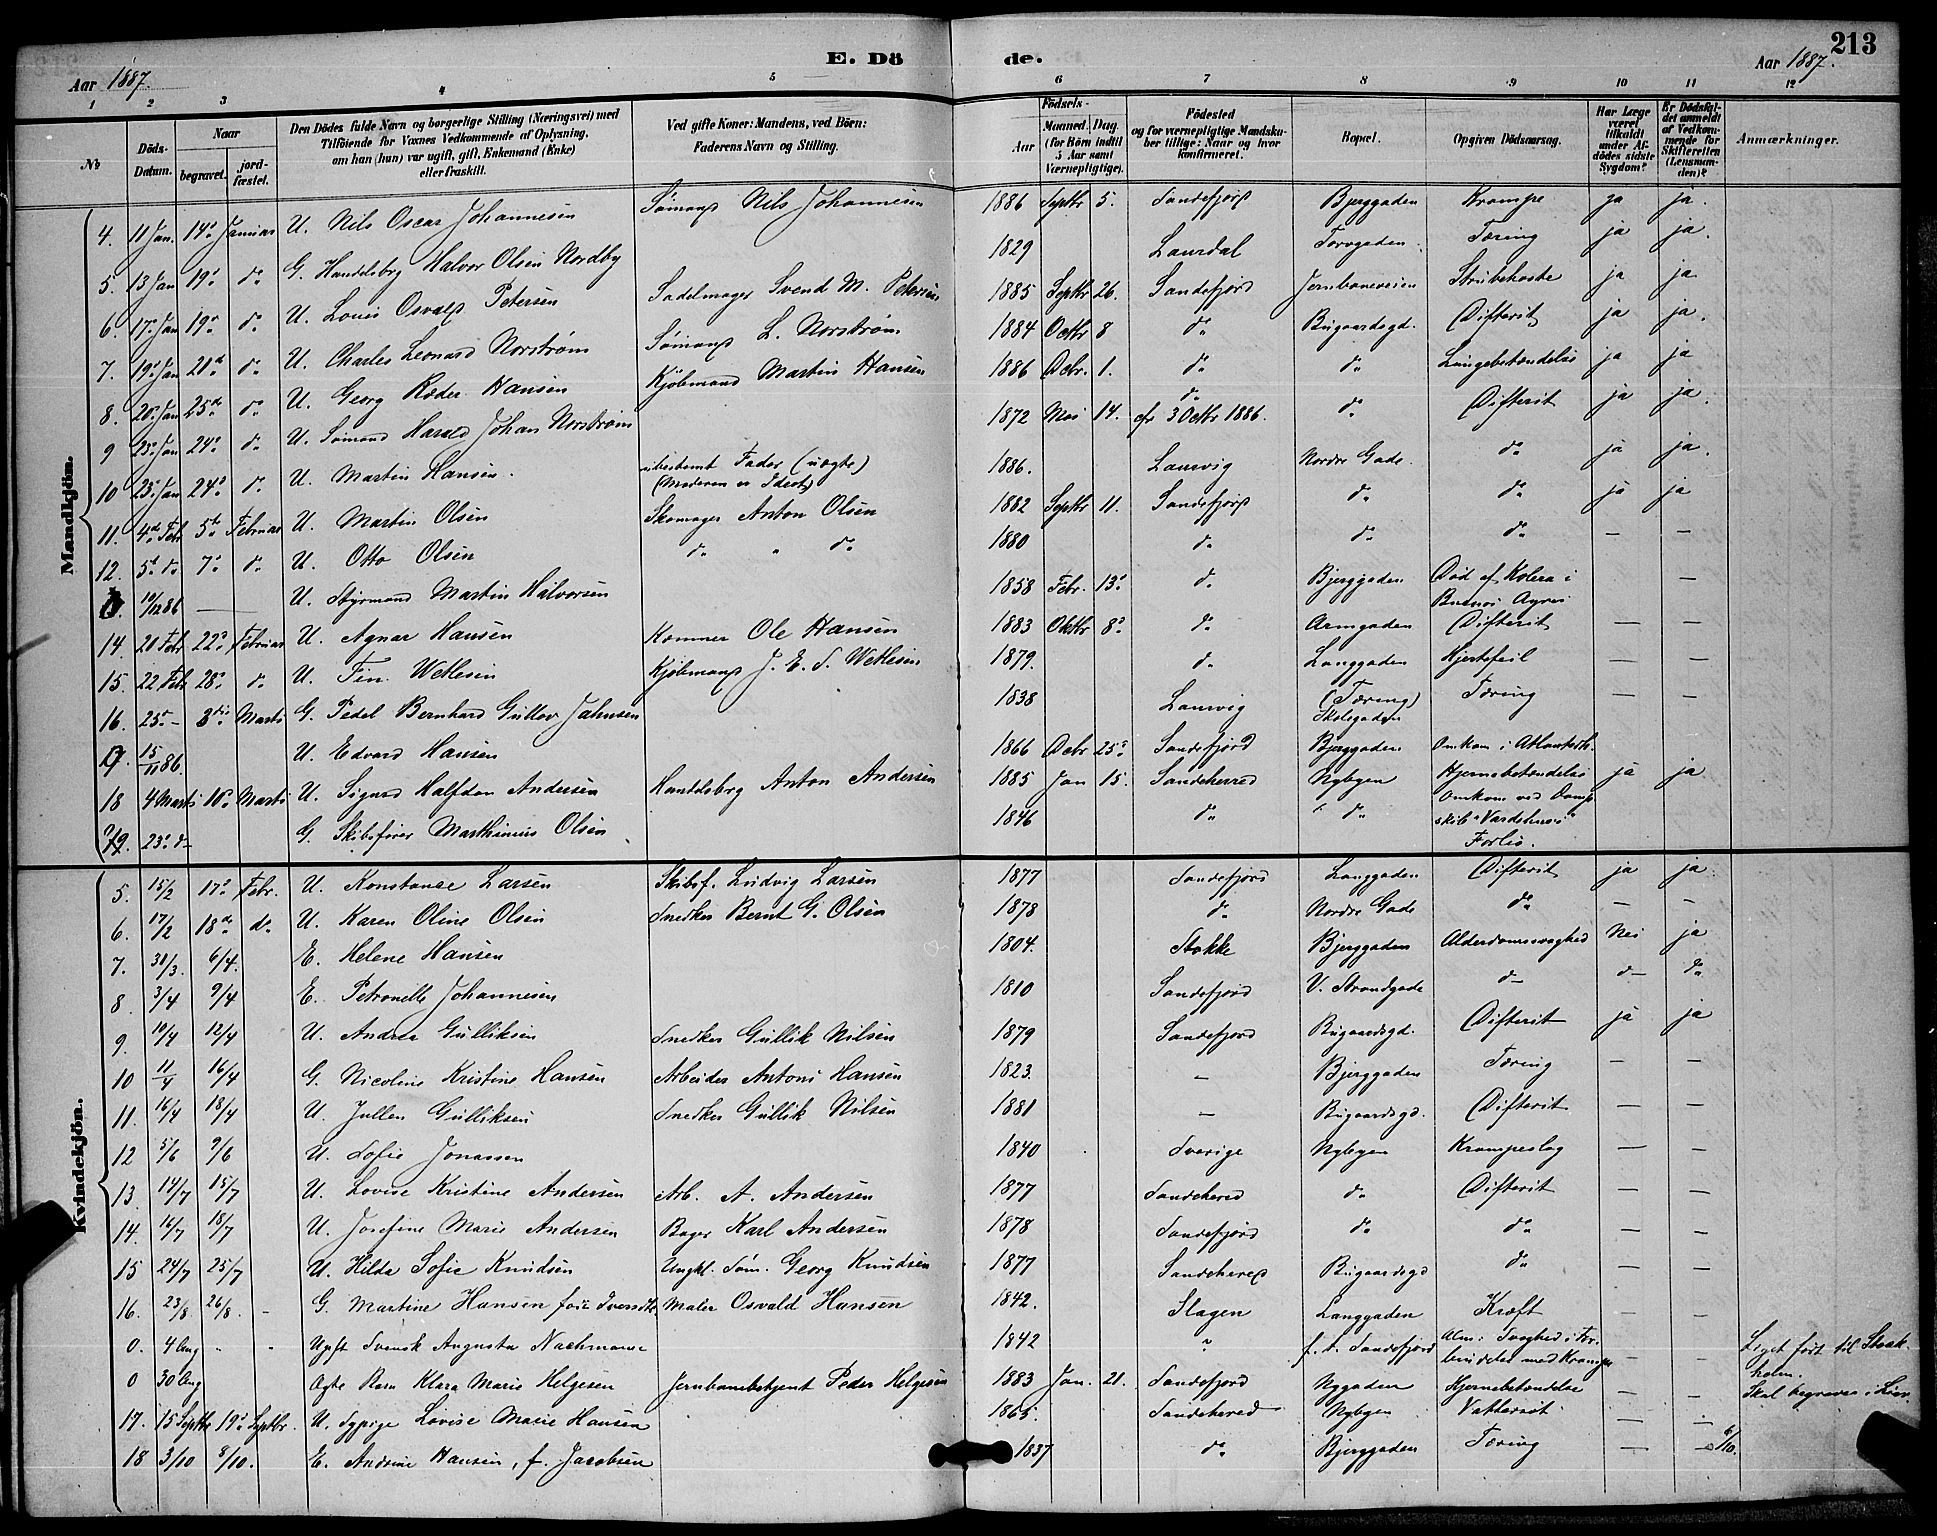 213
E. Dö de.
Aar 1887. Aar 1887.
1 2 3 4 5 6 7 8 9 10 11 12
No
Döds-Datum.
Naar begravet. jordfæstet.
Den Dödes fulde Navn og borgerlige Stilling (Næringsvei) med Tilföiende for Voxnes Vedkommende af Oplysning, om han (hun) var ugift, gift, Enkemand (Enke) eller fraskilt.
Ved gifte Koner: Mandens, ved Börn: Faderens Navn og Stilling.
Födsels- Aar Maaned. Dag. (for Börn indtil 5 Aar samt Værnepligtige).
Födested og for værnepligtige Mandskaber tillige: Naar og hvor konfirmeret.
Bopæl.
Opgiven Dödsaarsag.
Har Læge været tilkaldt under Afdödes sidste Sygdom?
Er Dödsfaldet anmeldt af Vedkommende for Skifteretten (Lensmanden)?
Anmærkninger.
Mandkjön.
4. 11 Jan. 14de Januar U. Nils Oscar Johannesen Sömand Nils Johannesen 1886 Septbr 5. Sandefjord Bjerggaden Krampe ja ja.
5. 13 Jan 19de do G. Handelsbrg Halvor Olsen Nordby 1829 Laurdal Torvgaden Tæring ja ja.
6. 17de Jan 19de do U. Louis Osvald Petersen Sadelmager Svend M. Petersen 1885 Septbr 26. Sandefjord Jernbaneveien Strubehoste ja ja
7. 19de Jan 21de do U. Charles Leonard Norström Sömand L. Norström 1884 Octbr 8 do Bugaardsgd. Difterit ja ja.
8. 20de Jan 25de do U. Georg Røder Hansen Kjöbmand Martin Hansen 1886 Dcbr. 1. do do Lungebetændelse ja ja
9 23de Jan 24de do U. Sömand Harald Johan Norström 1872 Mai 14. do cfr 3 Octbr 1886. do Difterit ja ja.
10 23de Jan 24de do U. Martin Hansen. ubestemt Fader (uægte) (Moderen er Idiot) 1886. Laurvig Nordre Gade. do ja ja.
11. 4de Febr 5te Februar U. Martin Olsen Skomager Anton Olsen 1882 Septbr 11. Sandefjord do do ja ja
12. 5te do 7de do U. Otto Olsen do " do 1880 do do do — —
10/12 86 — U. Styrmand Martin Halvorsen 1858 Febr. 13de do Bjerggaden Död af Kolera i Buenos Ayres —
14. 20 Febr 22de Februar U. Agnar Hansen Kæmner Ole Hansen 1883 Oktbr 8de do Armgaden Difterit — —
15. 22 Febr 28de do U. Fin Wetlesen Kjöbmand J. E. S. Wetlesen 1879. do Langgaden Hjertefeil — —
16. 25de — 3die Marts G. Pedel Bernhard Gustav Jahnsen 1838 Laurvig (Tæring) Skolegaden Tæring — —
15/11 86. U. Edvard Hansen 1866 Dcbr 25de Sandefjord Bjerggaden Omkom i Atlanterh. — —
18 4 Marts 10de Marts U. Sigurd Halfdan Andersen Handelsbrg Anton Andersen 1885 Jan 15. Sandeherred Nybyen Hjernebetændelse ja ja
19. 23de do G. Skibsförer Marthinius Olsen 1846 do do Omkom ved Dampskib "Vardehuus" Forlis.
Kvindekjön.
5. 15/2 17de Febr. U. Konstanse Larsen Skibsf. Ludvig Larsen 1877 Sandefjord Langgaden Difterit ja ja
6. 17/2 18de do U. Karen Oline Olsen Snedker Bernt G. Olsen 1878 do Nordre Gade do — —
7. 31/3. 6/4. E. Helene Hansen 1804. Stokke Bjerggaden Alderdomssvaghed Nei ja
8. 3/4 9/4 E. Petronelle Johannesen 1810 Sandefjord V. Strandgade do do do
9. 10/4 12/4 U. Andrea Gulliksen Snedker Gullik Nilsen 1879 Sandefjord Bugaardsgd. Difterit ja ja
10 11/4 16/4 G. Nicoline Kristine Hansen Arbeider Antoni Hansen 1823. — Bjerggaden Tæring — —
11. 16/4 18/4 U. Jullen Gulliksen Snedker Gullik Nilsen 1881 — Bugaardsgd. Difterit — —
12 5/6 9/6 U. Sofie Jonassen 1840 Sverige Nybyen Krampeslag — —
13. 14/7 15/7 U. Lovise Kristine Andersen Arb. A. Andersen 1877 Sandehered do Difterit — —
14. 16/7 18/7 U. Josefine Marie Andersen Bager Karl Andersen 1878 Sandefjord do do — —
15 24/7 25/7 U. Hilda Sofie Knudsen Ungkl. Söm. Georg Knudsen 1877 Sandehered Bugaardsgd do — —
16. 23/8 26/8. - G. Martine Hansen Maler Osvald Hansen 1842. Slagen Langgaden Kræft — —
0. 4 Aug " " Ugift Svensk Augusta Nachmanse 1842 " f. t. Sandefjord Alm: Svaghed i Forbindelse med Krampe — — Liget fört til Stockholm.
0 30 Aug Ægte Barn Klara Marie Helgesen Jernbanebetjent Peder Helgesen 1883 Jan. 21. Sandefjord Nygaden Hjernebetændelse — — Skal begraves i Lier
17. 15 Septbr 19de Septbr. U. Sypige Lovise Marie Hansen 1865. Sandehered Nybyen Vattersot — —
18 3/10 8/10. E. Andrine Hansen, f. Jacobsen 1837 do Bjerggaden Tæring — — 6/10.